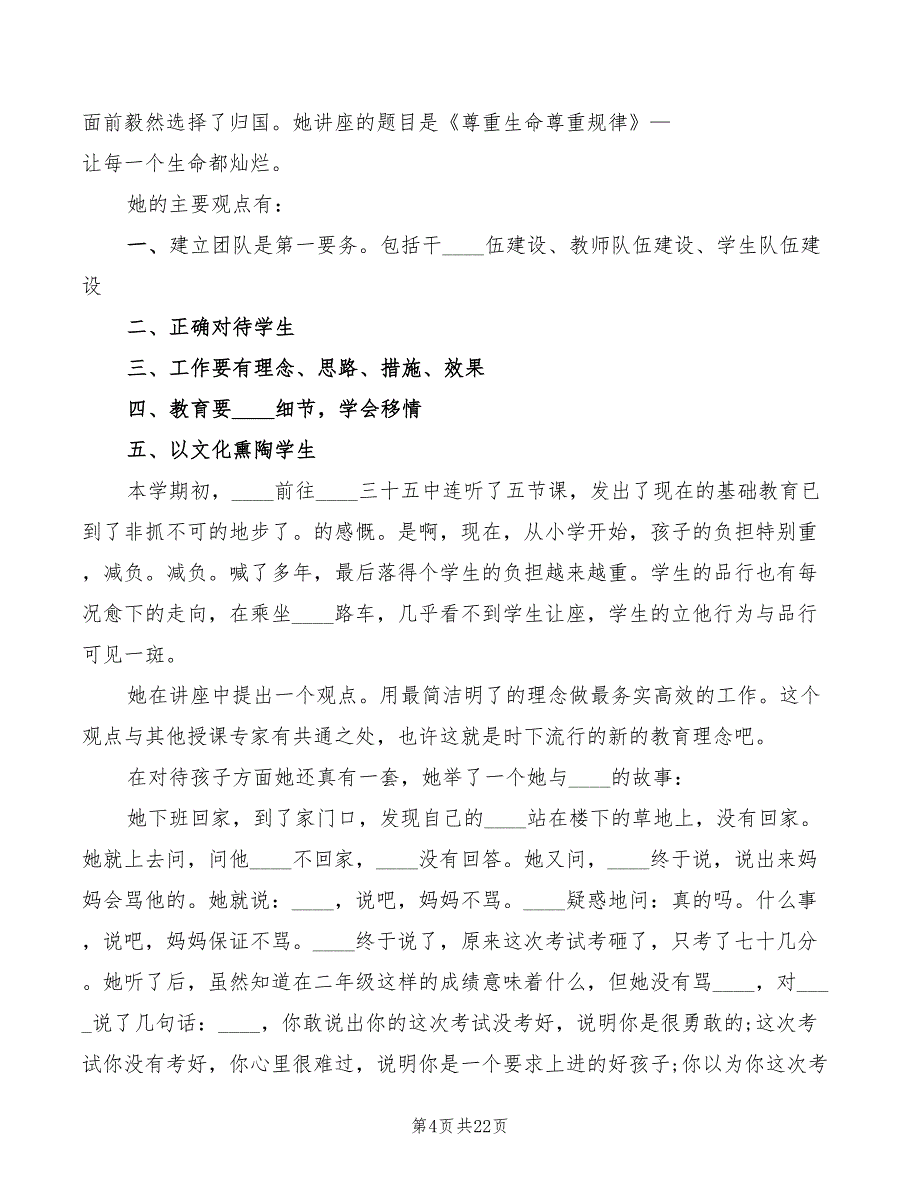 面前毅然选择了归国。她讲座的题目是《尊重生命尊重规律》—
让每一个生命都灿烂。
她的主要观点有：
一、建立团队是第一要务。包括干____伍建设、教师队伍建设、学生队伍建
设
二、正确对待学生
三、工作要有理念、思路、措施、效果
四、教育要____细节，学会移情
五、以文化熏陶学生
本学期初，____前往____三十五中连听了五节课，发出了现在的基础教育已
到了非抓不可的地步了。的感慨。是啊，现在，从小学开始，孩子的负担特别重
，减负。减负。喊了多年，最后落得个学生的负担越来越重。学生的品行也有每
况愈下的走向，在乘坐____路车，几乎看不到学生让座，学生的立他行为与品行
可见一斑。
她在讲座中提出一个观点。用最简洁明了的理念做最务实高效的工作。这个
观点与其他授课专家有共通之处，也许这就是时下流行的新的教育理念吧。
在对待孩子方面她还真有一套，她举了一个她与____的故事：
她下班回家，到了家门口，发现自己的____站在楼下的草地上，没有回家。
她就上去问，问他____不回家，____没有回答。她又问，____终于说，说出来妈
妈会骂他的。她就说：____，说吧，妈妈不骂。____疑惑地问：真的吗。什么事
，说吧，妈妈保证不骂。____终于说了，原来这次考试考砸了，只考了七十几分
。她听了后，虽然知道在二年级这样的成绩意味着什么，但她没有骂____，对___
_说了几句话：____，你敢说出你的这次考试没考好，说明你是很勇敢的;这次考
试你没有考好，你心里很难过，说明你是一个要求上进的好孩子;你以为你这次考
第4页共22页